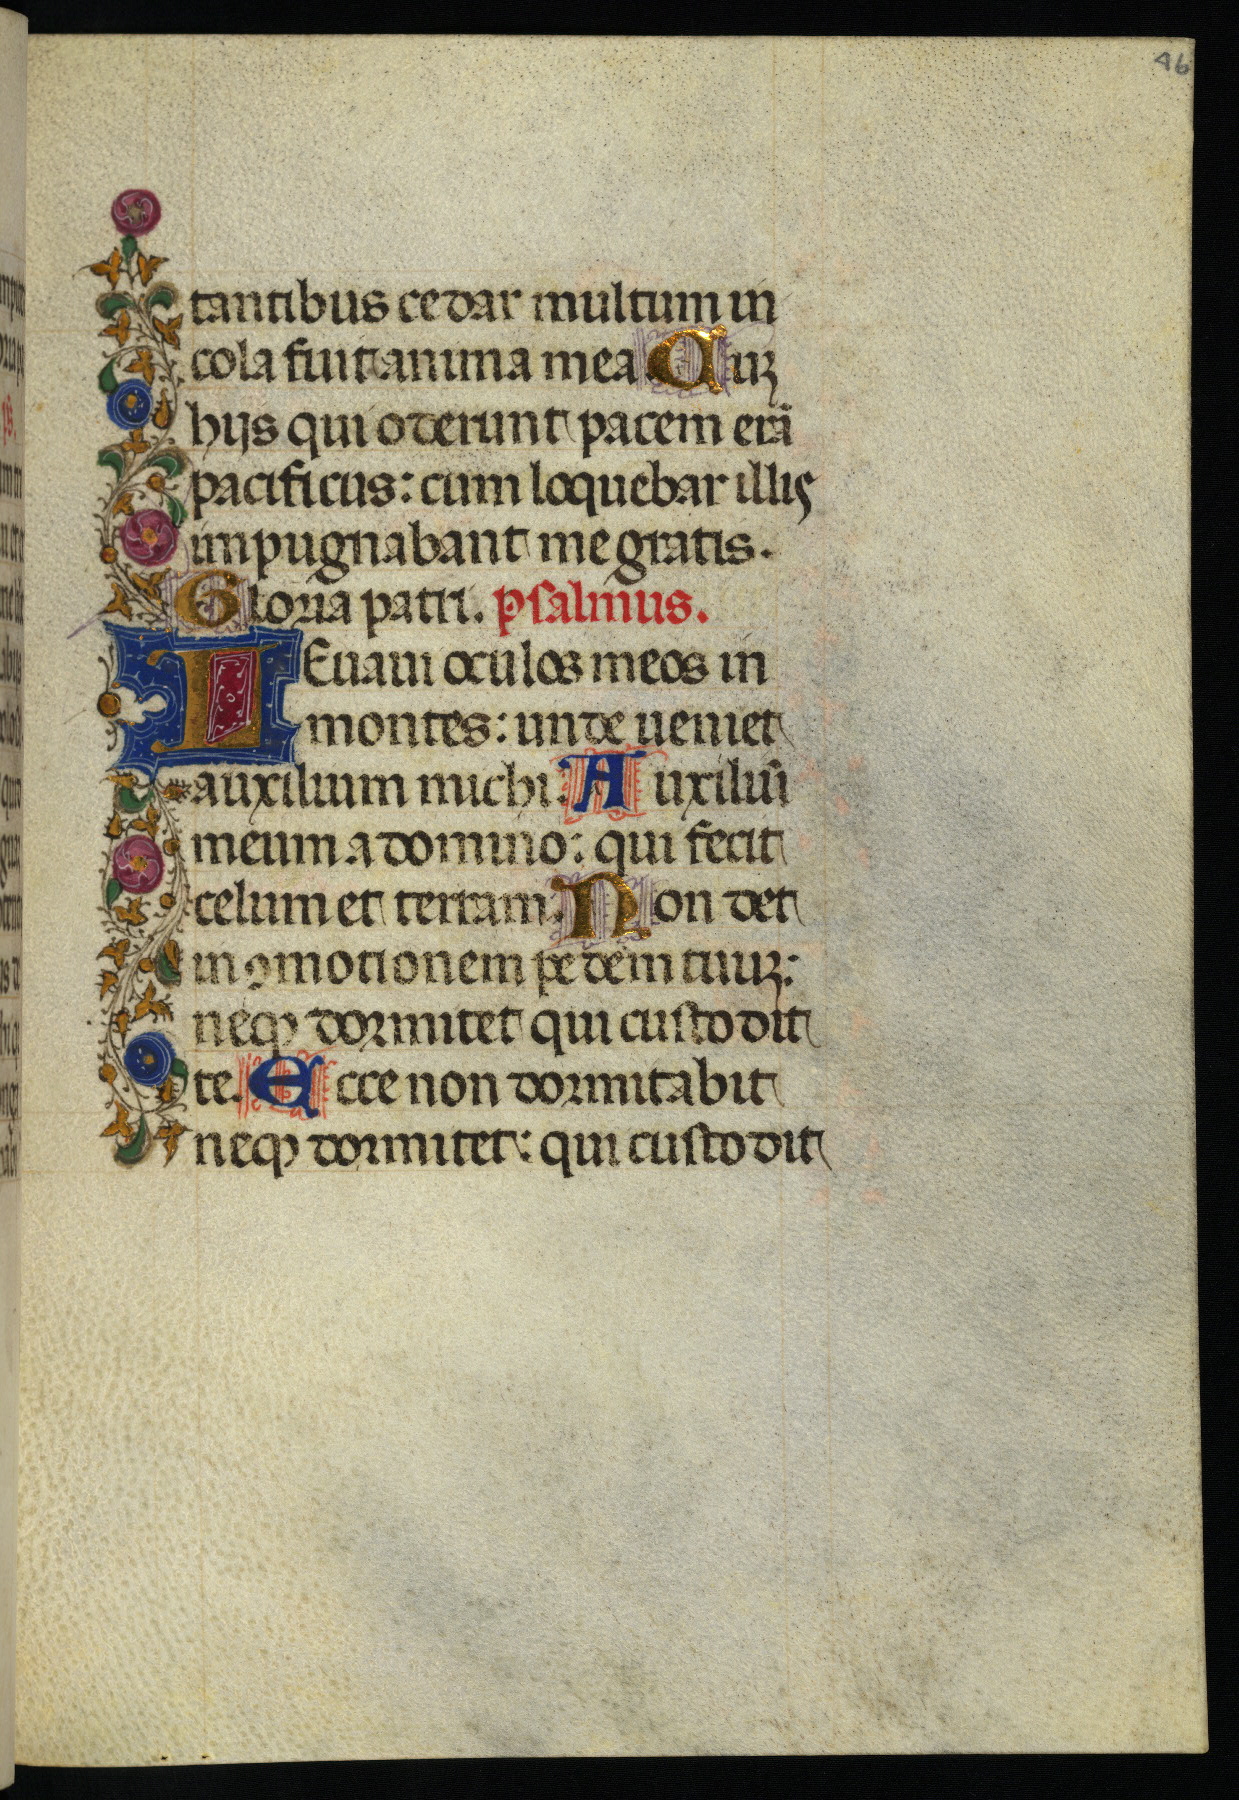 46
tantibus cedar multum in
cola fuit anima mea. Cuꝫ
hijs qui oderunt pacem erā
pacificus: cum loquebar illis
impugnabant me gratis.
Gloria patri. psalmus.
LEuaui oculos meos in
montes: unde ueniet
auxilium michi. Auxiliū
meum a domino: qui fecit
celum et terram. Non det
in ꝯmotionem pedem tuuꝫ:
neqꝫ dormitet qui custodit
te. Ecce non dormitabit
neqꝫ dormitet: qui custodit